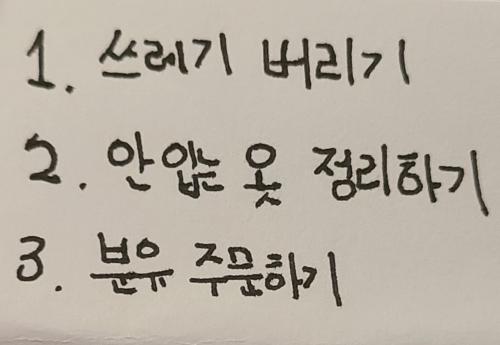 1. 쓰레기 버리기
2. 안 입는 옷 정리하기
3. 분유 주문하기